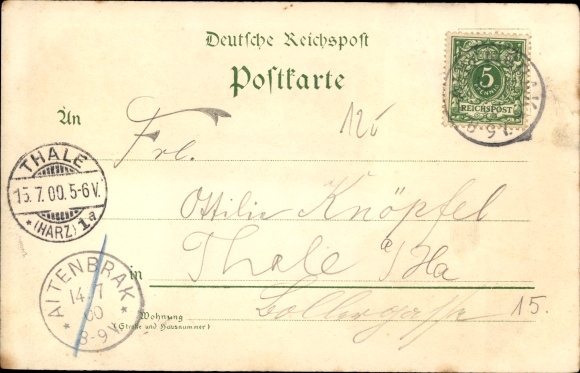 Deutsche Reichspost
Postkarte
5
REICHSPOST
An
125
Frl.
Ottilie Knöpfel
Thale a/Ha
in
Wohnung
(Straße und Hausnummer)
15.
THALE
15.7.00.5-6V.
*(HARZ) 1a
* ALTENBRAK *
14 7
00
8-9V.